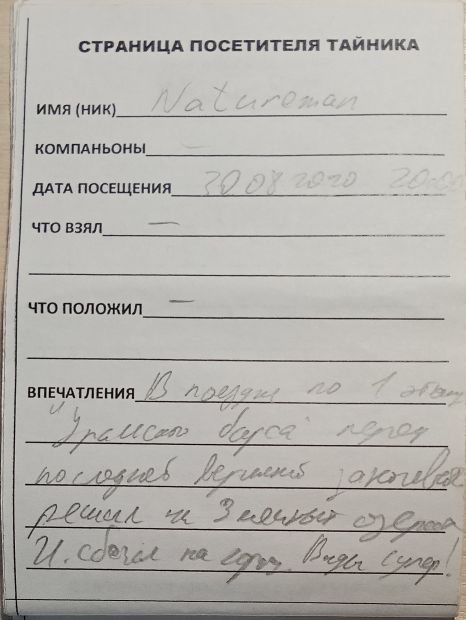 СТРАНИЦА ПОСЕТИТЕЛЯ ТАЙНИКА
ИМЯ (НИК) Natureman
КОМПАНЬОНЫ –
ДАТА ПОСЕЩЕНИЯ 30 08 2020 20:00
ЧТО ВЗЯЛ –
ЧТО ПОЛОЖИЛ –
ВПЕЧАТЛЕНИЯ В поездке по 1 этапу
"Уральского барса" перед
последней вершиной
решил на Зеленых озерах
И сбегал на гору. Виды супер!